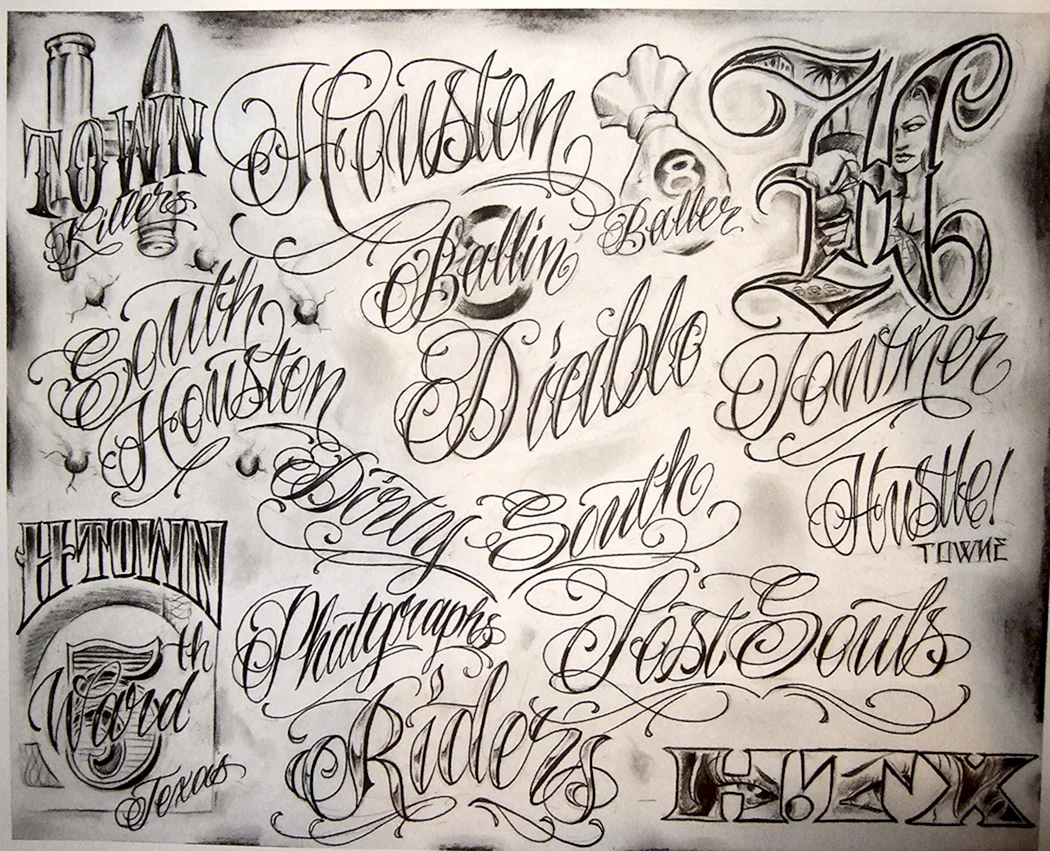 TOWN
Killers
Houston
Ballin
8
Baller
H
South
Houston
Diablo
Towner
Dirty South
Hustle!
TOWNE
H-TOWN
5th
Ward
Texas
Phatgraphs
Lost Souls
Riders
H!TX